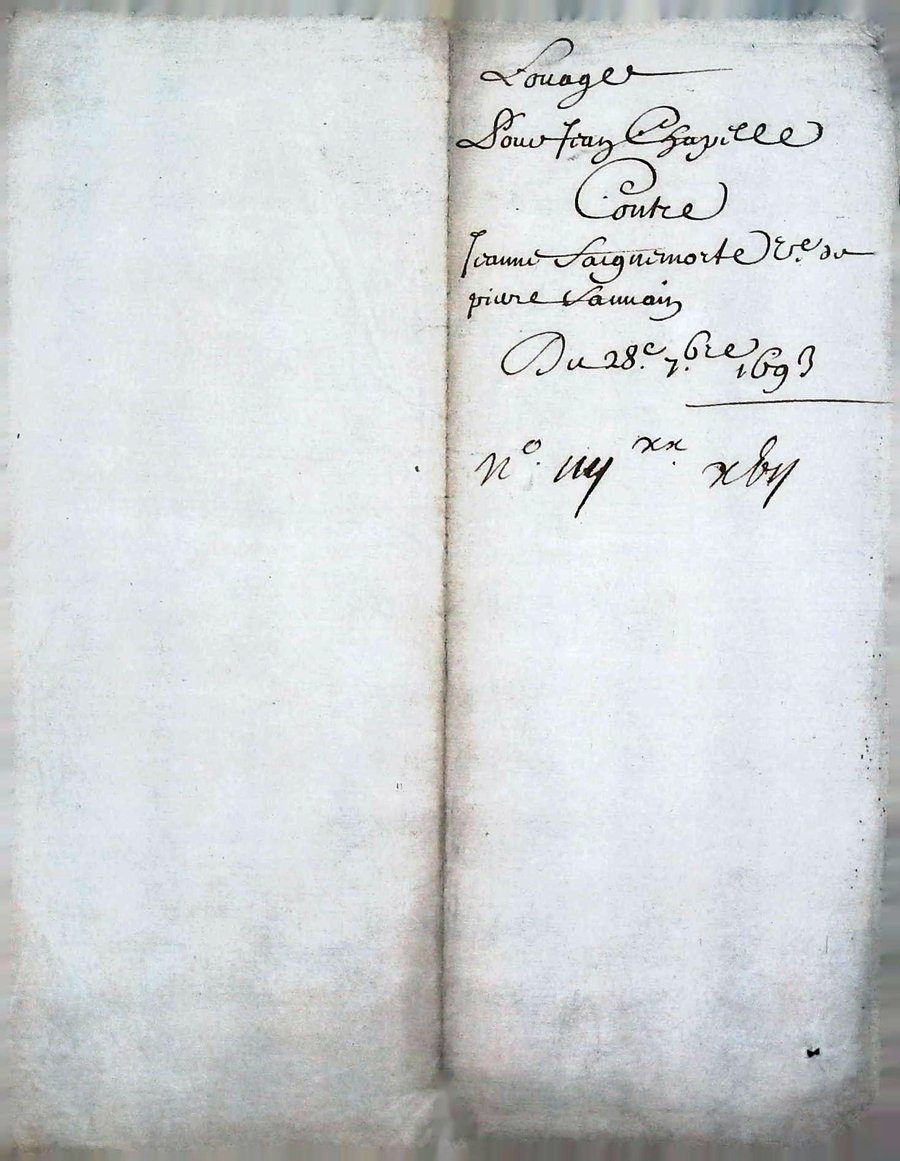 Louage
Pour Jean Chapelle
Contre
Jeanne Saignemorte Ve. de
pierre Sauvain
Du 28e. 7.bre 1693
No. iiij xx. xbij